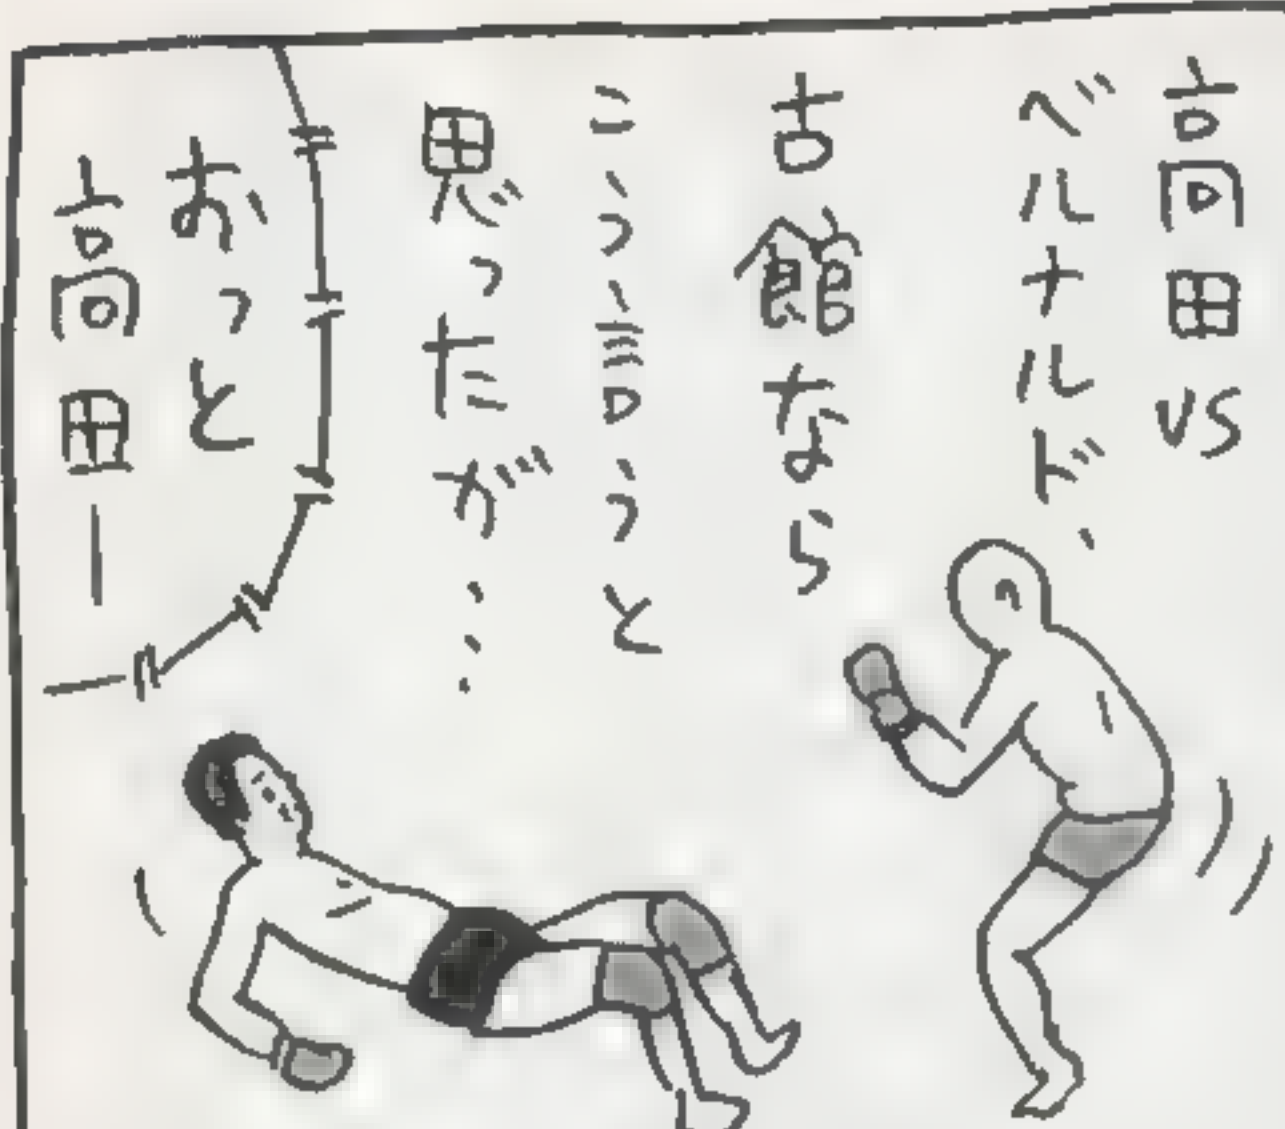 高田VS
ベルナルド、
古館なら
こう言うと
思ったが…
おっと
高田ー